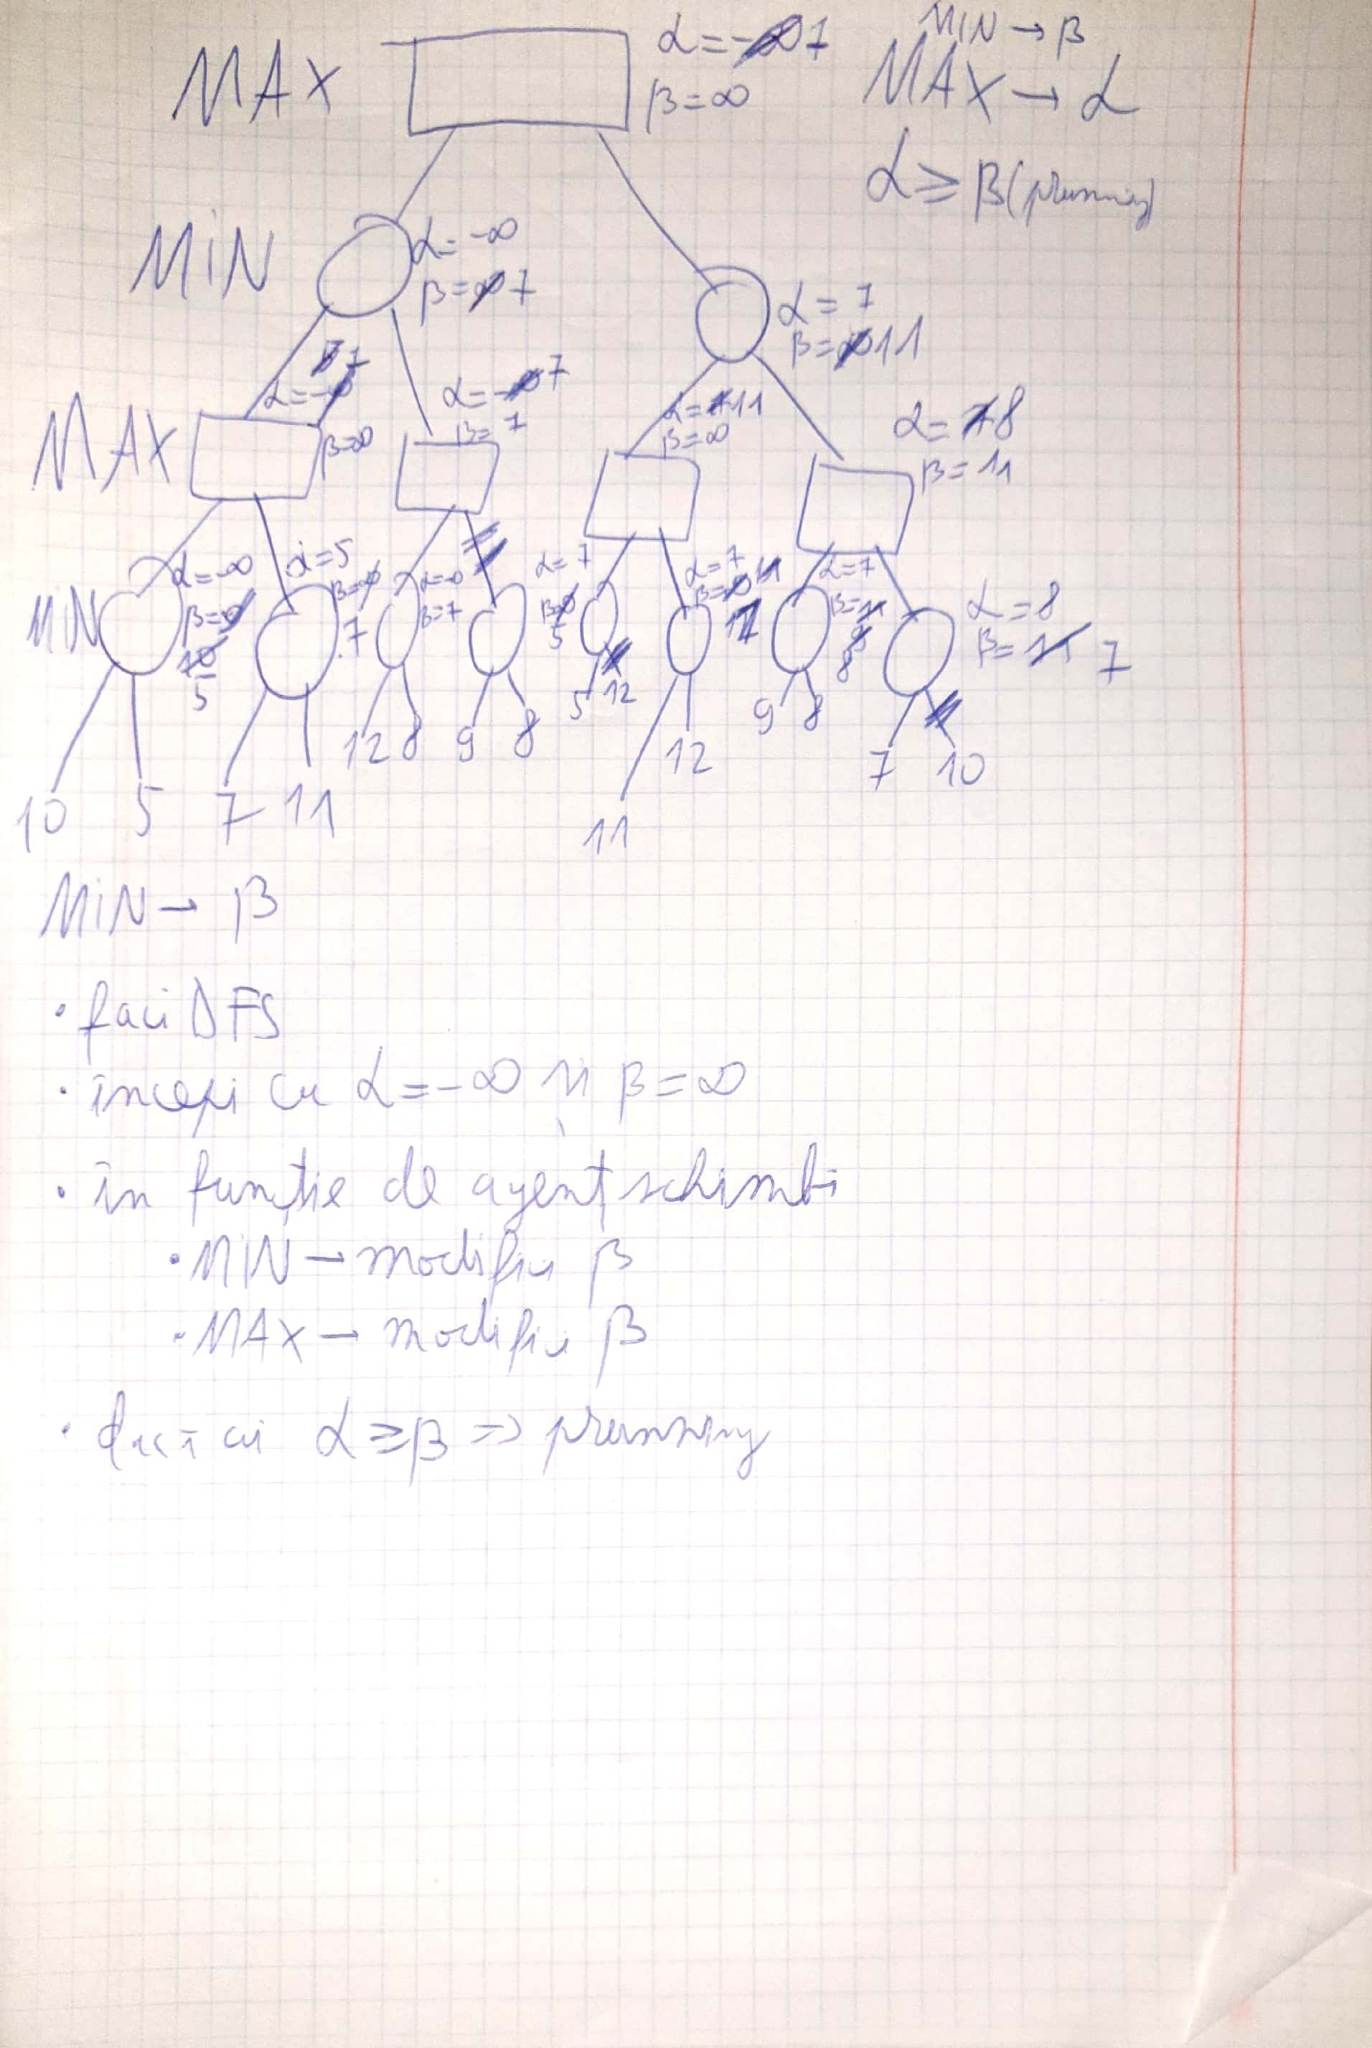 MIN → β
MAX
α = -∞ 7
β = ∞
MAX → α
α ≥ β (prunning)
MIN
α = -∞
β = ∞ 7
α = 7
β = ∞ 11
MAX
7
α = -∞
β = ∞
α = -∞ 7
β = 7
α = 7 11
β = ∞
α = 7 8
β = 11
MIN
α = -∞
β = ∞
10
5
α = 5
β = ∞
7
α = -∞
β = 7
α = 7
β = ∞
5
α = 7
β = ∞ 11
α = 7
β = 11
8
α = 8
β = 11 7
10 5 7 11 12 8 9 8 5 12 11 12 9 8 7 10
MIN → β
• faci DFS
• începi cu α = -∞ și β = ∞
• în funcție de agent schimbi
• MIN → modifici β
• MAX → modifici β
• dacă ai α ≥ β => prunning